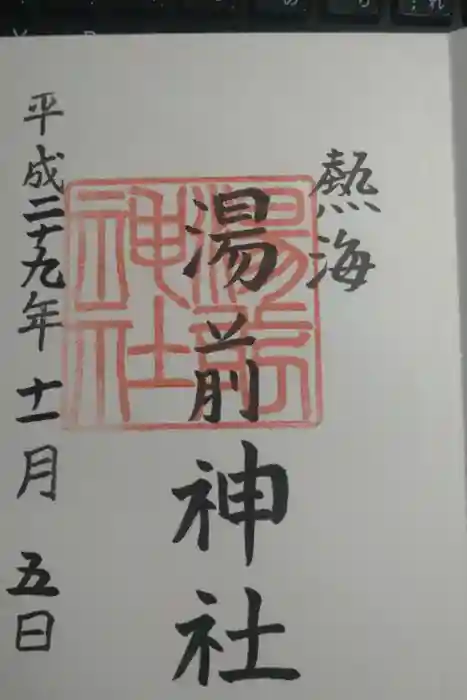 熱海
湯前神社
湯前神社
平成二十九年十一月五日